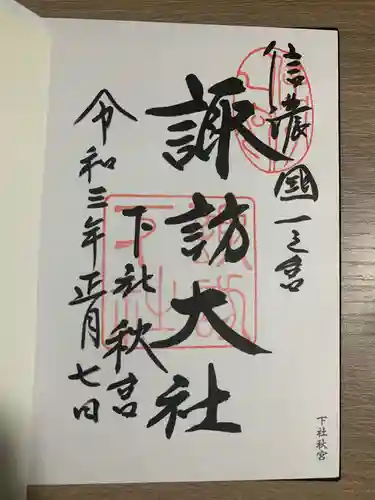 信濃國一之宮
諏訪大社
下社秋宮
令和三年正月七日
諏訪
下社
下社秋宮